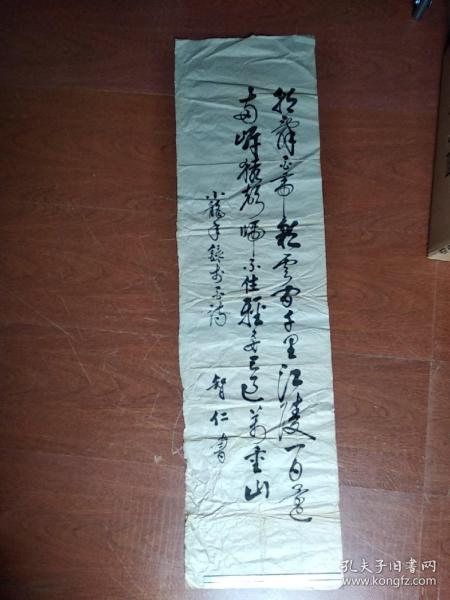 朝辞白帝彩云间千里江陵一日还
两岸猿声啼不住轻舟已过万重山
小龙年录李白诗
智仁书
孔夫子旧书网
www.kongfz.com